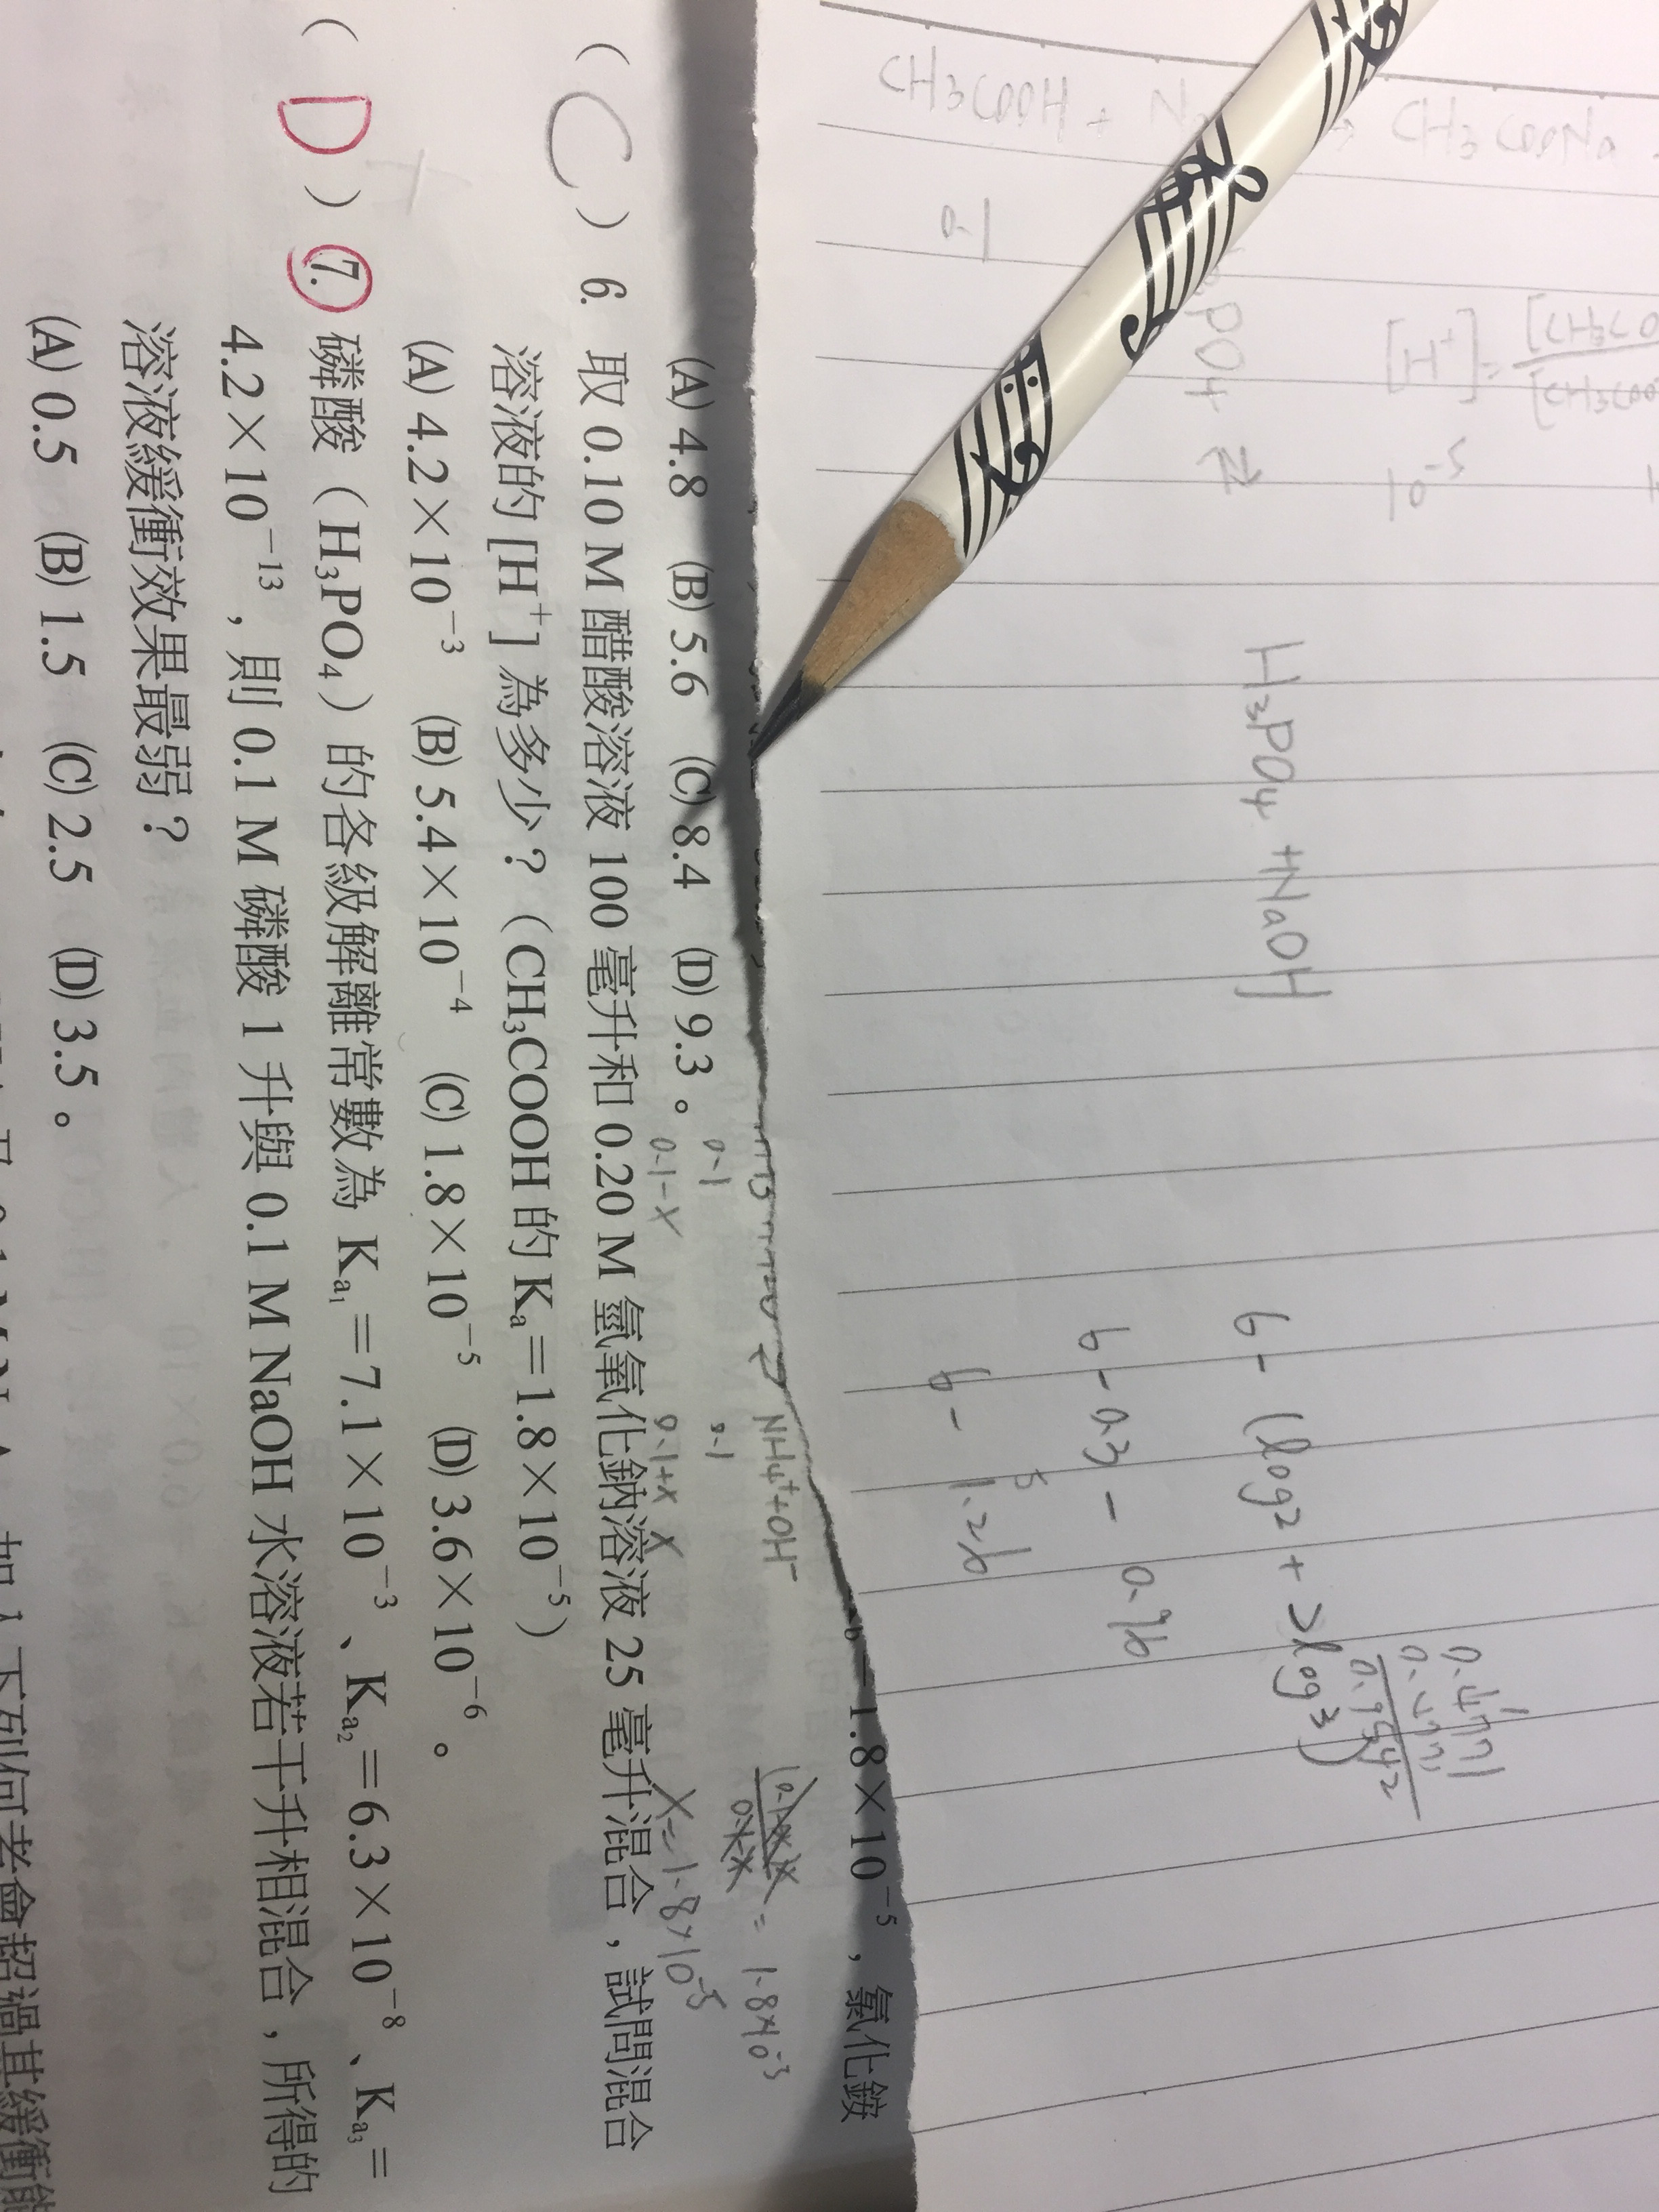 -b=1.8×10⁻⁵，氯化銨
(A) 4.8 (B) 5.6 (C) 8.4 (D) 9.3。
( C ) 6. 取 0.10 M 醋酸溶液 100 毫升和 0.20 M 氫氧化鈉溶液 25 毫升混合，試問混合
溶液的 [H⁺] 為多少？（CH₃COOH 的 Kₐ＝1.8×10⁻⁵）
(A) 4.2×10⁻³ (B) 5.4×10⁻⁴ (C) 1.8×10⁻⁵ (D) 3.6×10⁻⁶。
( D ) 7. 磷酸（H₃PO₄）的各級解離常數為 Kₐ₁＝7.1×10⁻³、Kₐ₂＝6.3×10⁻⁸、Kₐ₃＝
4.2×10⁻¹³，則 0.1 M 磷酸 1 升與 0.1 M NaOH 水溶液若干升相混合，所得的
溶液緩衝效果最弱？
(A) 0.5 (B) 1.5 (C) 2.5 (D) 3.5。
下列何者會超過其緩衝能
CH₃COOH + N
CH₃COONa
0.1
PO₄ ⇌
[H⁺] =
10⁻⁵
H₃PO₄ + NaOH
6 - (log2 + 2log3)
6 - 0.3 - 0.96
6 - 1.26
5
0.4771
0.4771
0.9542
NH₄⁺+OH⁻
0.1
0.1
0.1-x
0.1+x
x
= 1.8×10⁻³
x=1.8×10⁻⁵